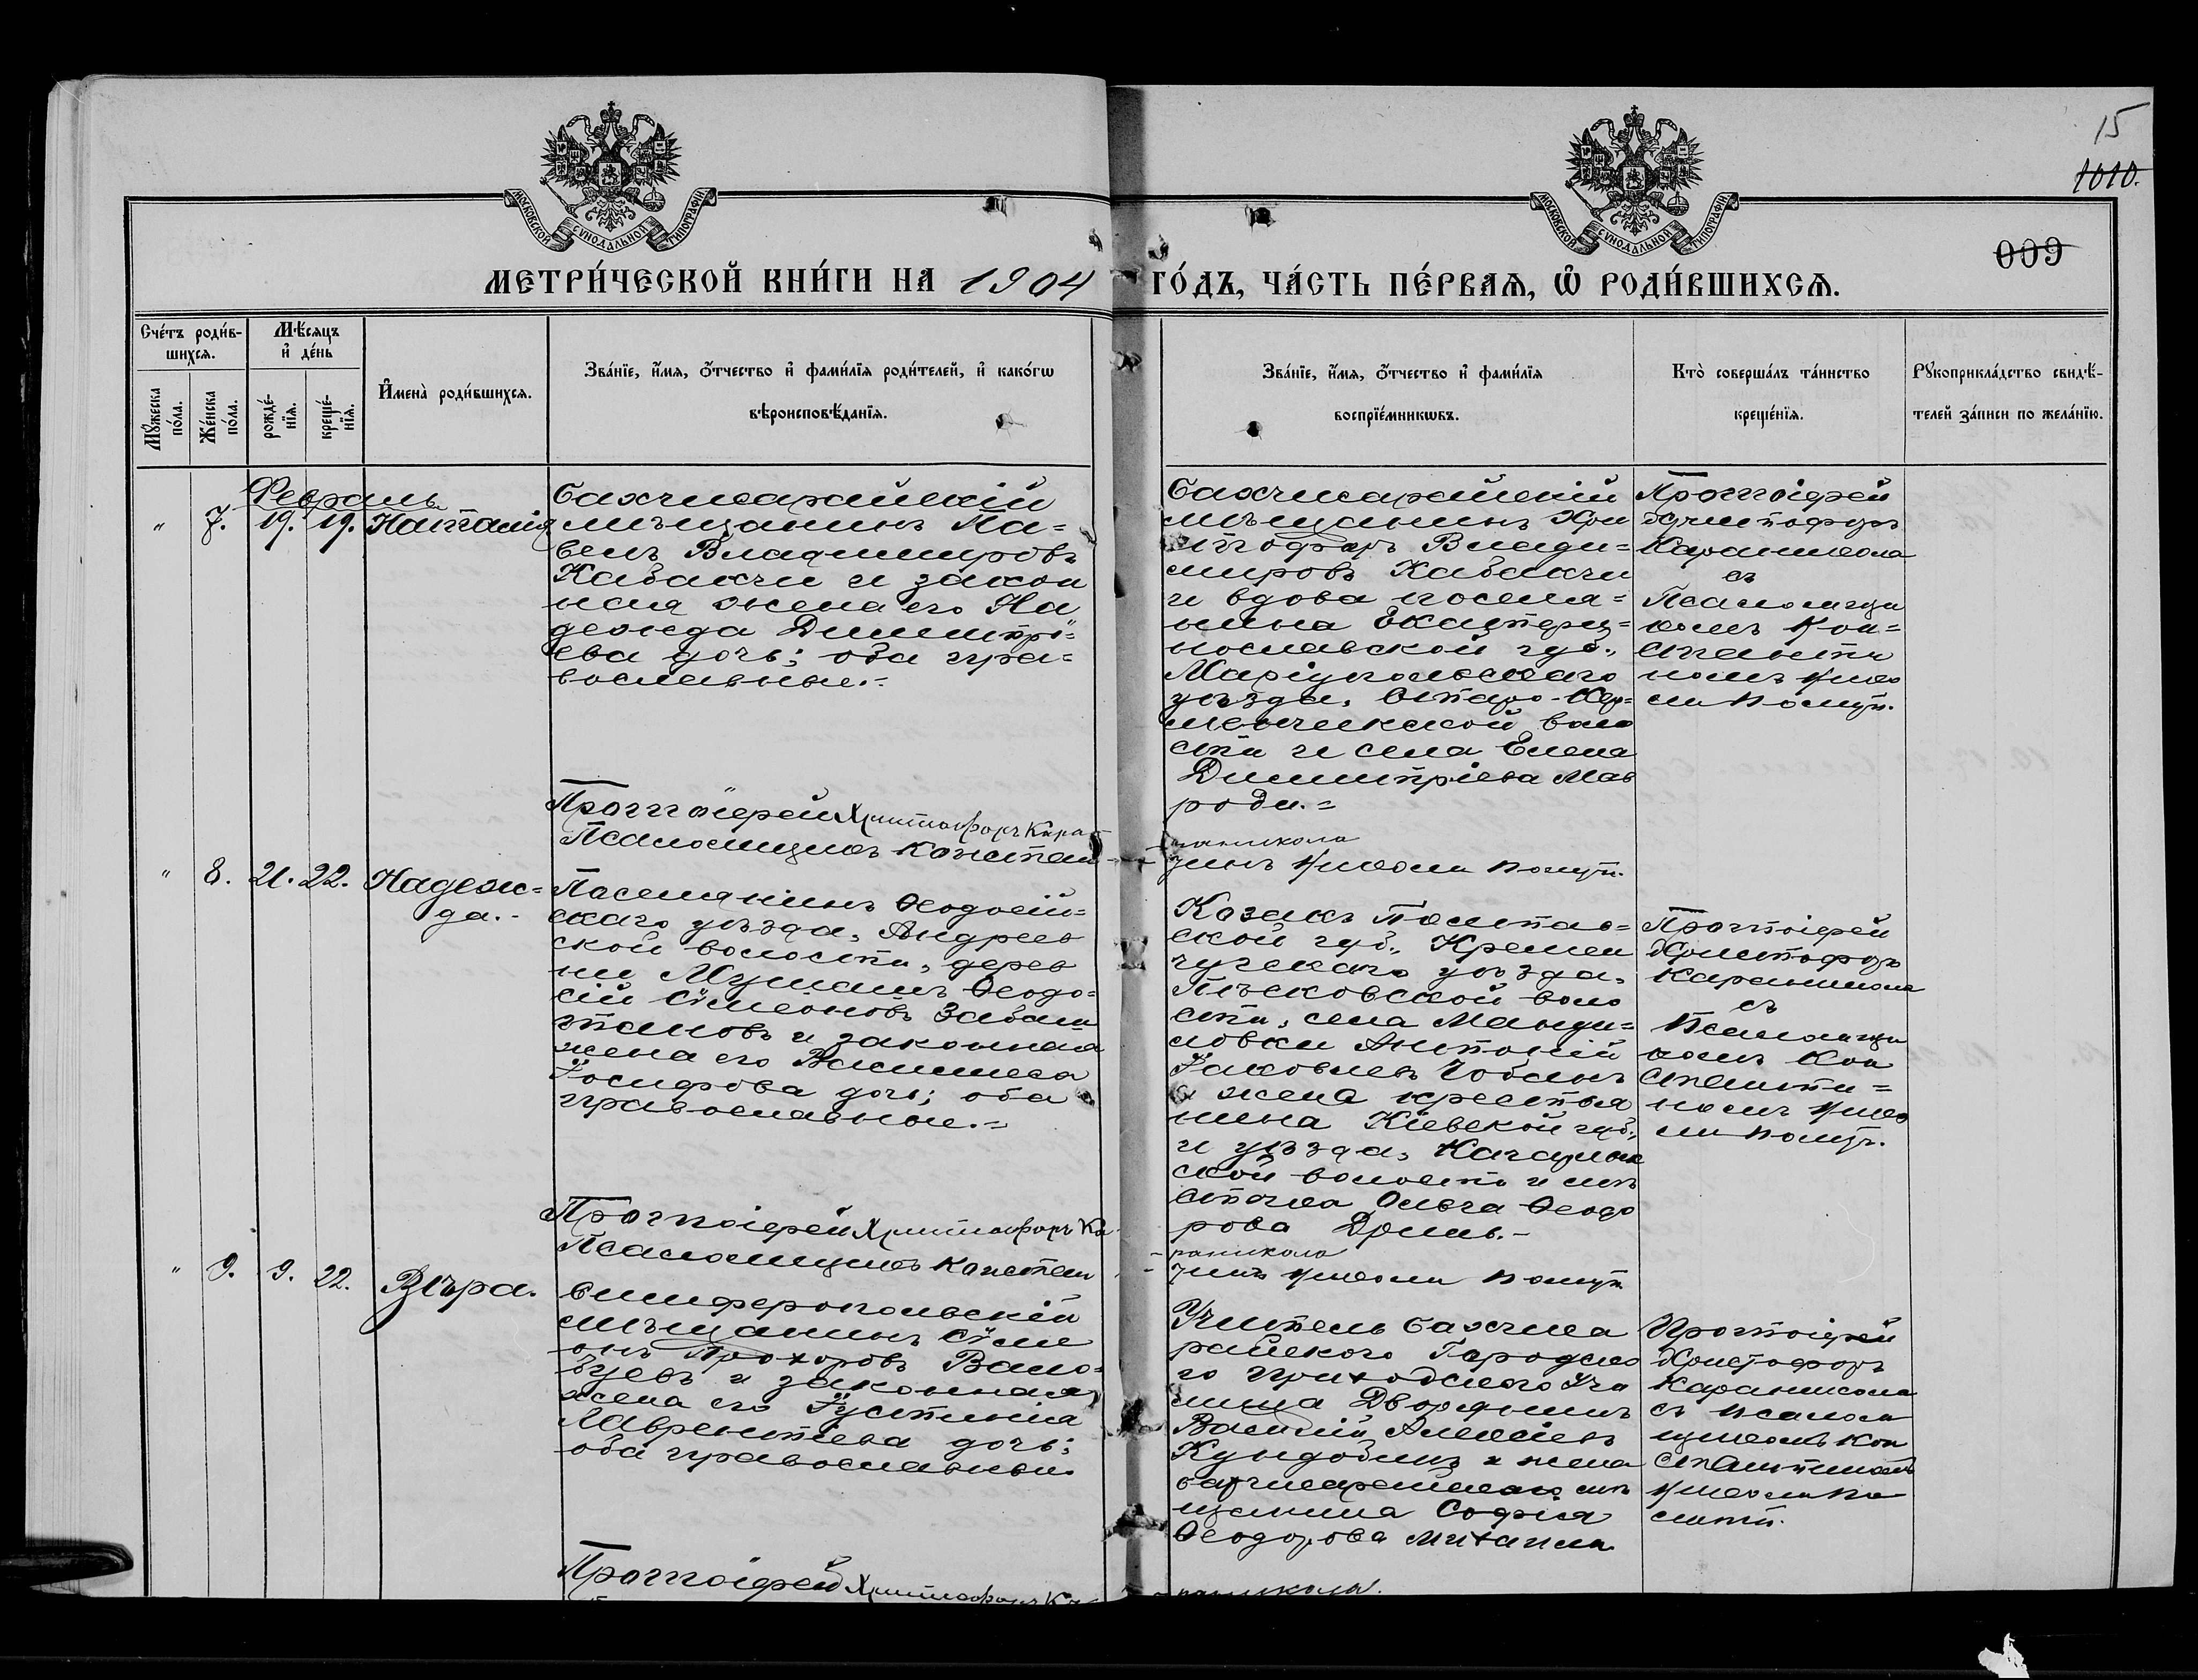 15
1010.
009
МОСКОВСКОЙ СѴНОДАЛЬНОЙ ТИПОГРАФІИ
МОСКОВСКОЙ СѴНОДАЛЬНОЙ ТИПОГРАФІИ
МЕТРИ́ЧЕСКОЙ КНИ́ГИ НА 1904 ГО́ДЪ, ЧА́СТЬ ПЕ́РВАѦ, Ѡ҆ РОДИ́ВШИХСѦ.
Сче́тъ роди́в-
шихсѧ.
Мꙋжеска
по́ла.
Же́нска
по́ла.
Мѣ́сяцъ
и҆ де́нь
рожде́-
нїѧ.
креще́-
нїѧ.
И҆мена̀ роди́вшихсѧ.
Зва́нїе, и҆́мѧ, ѻ҆́тчество и҆ фами́лїѧ роди́телей, и҆ како́гѡ
вѣроисповѣ́данїѧ.
Зва́нїе, и҆́мѧ, ѻ҆́тчество и҆ фами́лїѧ
воспрїе́мникѡвъ.
Кто̀ соверша́лъ та́инство
креще́нїѧ.
Рꙋкоприкла́дство свидѣ́-
телей за́писи по жела́нїю.
Февраль
" 7. 19. 19. Наталія
Бахчисарайскій
мѣщанинъ Па=
велъ Владимировъ
Кабакчи и закон
ная жена его На
дежда Димитрі=
ева дочь; оба пра=
вославные.=
Бахчисарайскій
мѣщанинъ Хри
стофоръ Влади=
мировъ Кабакчи
и вдова поселя=
нина Екатери=
нославской губ.,
Маріупольскаго
уѣзда, Старо-Кер=
менчикской воло
сти и села Елена
Димитріева Мав
роди.=
Протоіерей
Христофоръ
Караникола
съ
Псаломщи
комъ Кон=
станти
номъ
Протоіерей Христофоръ Кара-
-никола
Псаломщикъ Констан-
тинъ
" 8. 21. 22. Надеж=
да.-
Поселянинъ Ѳеодосій=
скаго уѣзда, Андреев
ской волости, дерев
ни Ѳеодо=
сій Сѵмеоновъ
и законная
жена его Василиса
Іосифова дочь; оба
православные.=
Козакъ Полтав=
ской губ., Кремен
чугскаго уѣзда,
Пѣсковской воло
сти, села
Антоній
Іаковлевъ
и жена крестья
нина Кіевской губ.,
и уѣзда, Кагарлык
ской волости и мѣ
стечка Ольга Ѳеодо
рова
Протоіерей
Христофоръ
Караникола
съ
Псаломщи
комъ Кон
станти=
номъ
Протоіерей Христофоръ Ка-
-раникола
Псаломщикъ Констан
-тинъ
" 9. 9. 22. Вѣра.
Симферопольскій
мѣщанинъ Сѵме
онъ Прохоровъ
и законная
жена его Іустинія
Лаврентіева дочь;
оба православные
Учитель Бахчиса
райскаго Городско
го Приходскаго Учи
лища Дворянинъ
Василій Алексіевъ
и жена
бахчисарайскаго мѣ
щанина Софія
Ѳеодорова Михаили
Протоіерей
Христофоръ
Караникола
съ псалом
щикомъ Кон
стантиномъ
Протоіерей Христофоръ Ка-
-раникола.